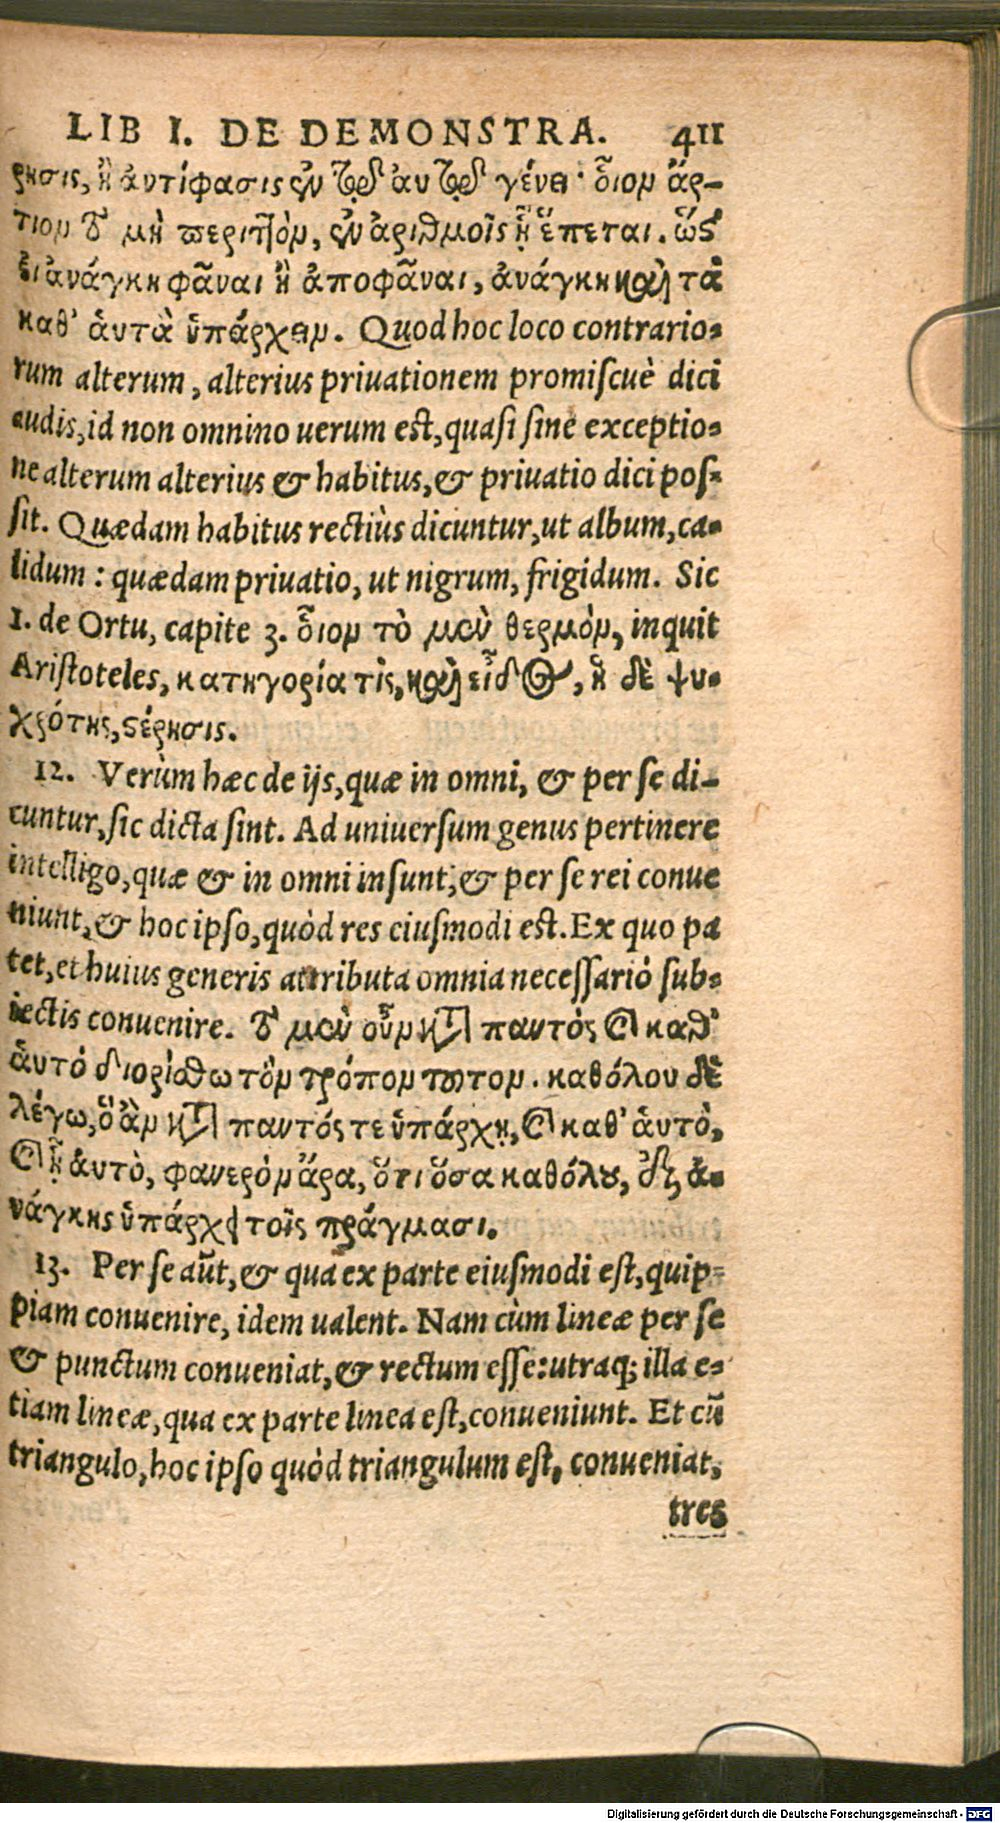 LIB I. DE DEMONSTRA. 411
ρησις, ἢ ἀντίφασις ἐν τῷ αὐτῷ γένει· οἷον ἄρ-
τιον τὸ μὴ περιττὸν, ἐν ἀριθμοῖς ᾗ ἕπεται. ὥστ'
εἰ ἀνάγκη φᾶναι ἢ ἀποφᾶναι, ἀνάγκη καὶ τὰ
καθ' ἁυτὰ ὑπάρχειν. Quod hoc loco contrario-
rum alterum, alterius priuationem promiscuè dici
audis, id non omnino uerum est, quasi sine exceptio-
ne alterum alterius & habitus, & priuatio dici pos-
sit. Quædam habitus rectiùs dicuntur, ut album, ca-
lidum: quædam priuatio, ut nigrum, frigidum. Sic
1. de Ortu, capite 3. οἷον τὸ μὲν θερμὸν, inquit
Aristoteles, κατηγορία τὶς, καὶ εἶδος, ἡ δὲ ψυ-
χρότης, στέρησις.
12. Verùm hæc de ijs, quæ in omni, & per se di-
cuntur, sic dicta sint. Ad uniuersum genus pertinere
intelligo, quæ & in omni insunt, & per se rei conue
niunt, & hoc ipso, quòd res eiusmodi est. Ex quo pa
tet, et huius generis attributa omnia necessariò sub-
iectis conuenire. τὸ μὲν οὖν κατὰ παντὸς καὶ καθ'
ἁυτό διορίσθω τὸν τρόπον τοῦτον. καθόλου δὲ
λέγω, ὃ ἂν κατὰ παντός τε ὑπάρχῃ, καὶ καθ' ἁυτὸ,
καὶ ᾗ ἁυτὸ, φανερὸν ἄρα, ὅτι ὅσα καθόλου, ἐξ ἀ-
νάγκης ὑπάρχει τοῖς πράγμασι.
13. Per se aūt, & qua ex parte eiusmodi est, quip-
piam conuenire, idem ualent. Nam cùm lineæ per se
& punctum conueniat, & rectum esse: utraq; illa e-
tiam lineæ, qua ex parte linea est, conueniunt. Et cū
triangulo, hoc ipso quòd triangulum est, conueniat,
tres
Digitalisierung gefördert durch die Deutsche Forschungsgemeinschaft - DFG